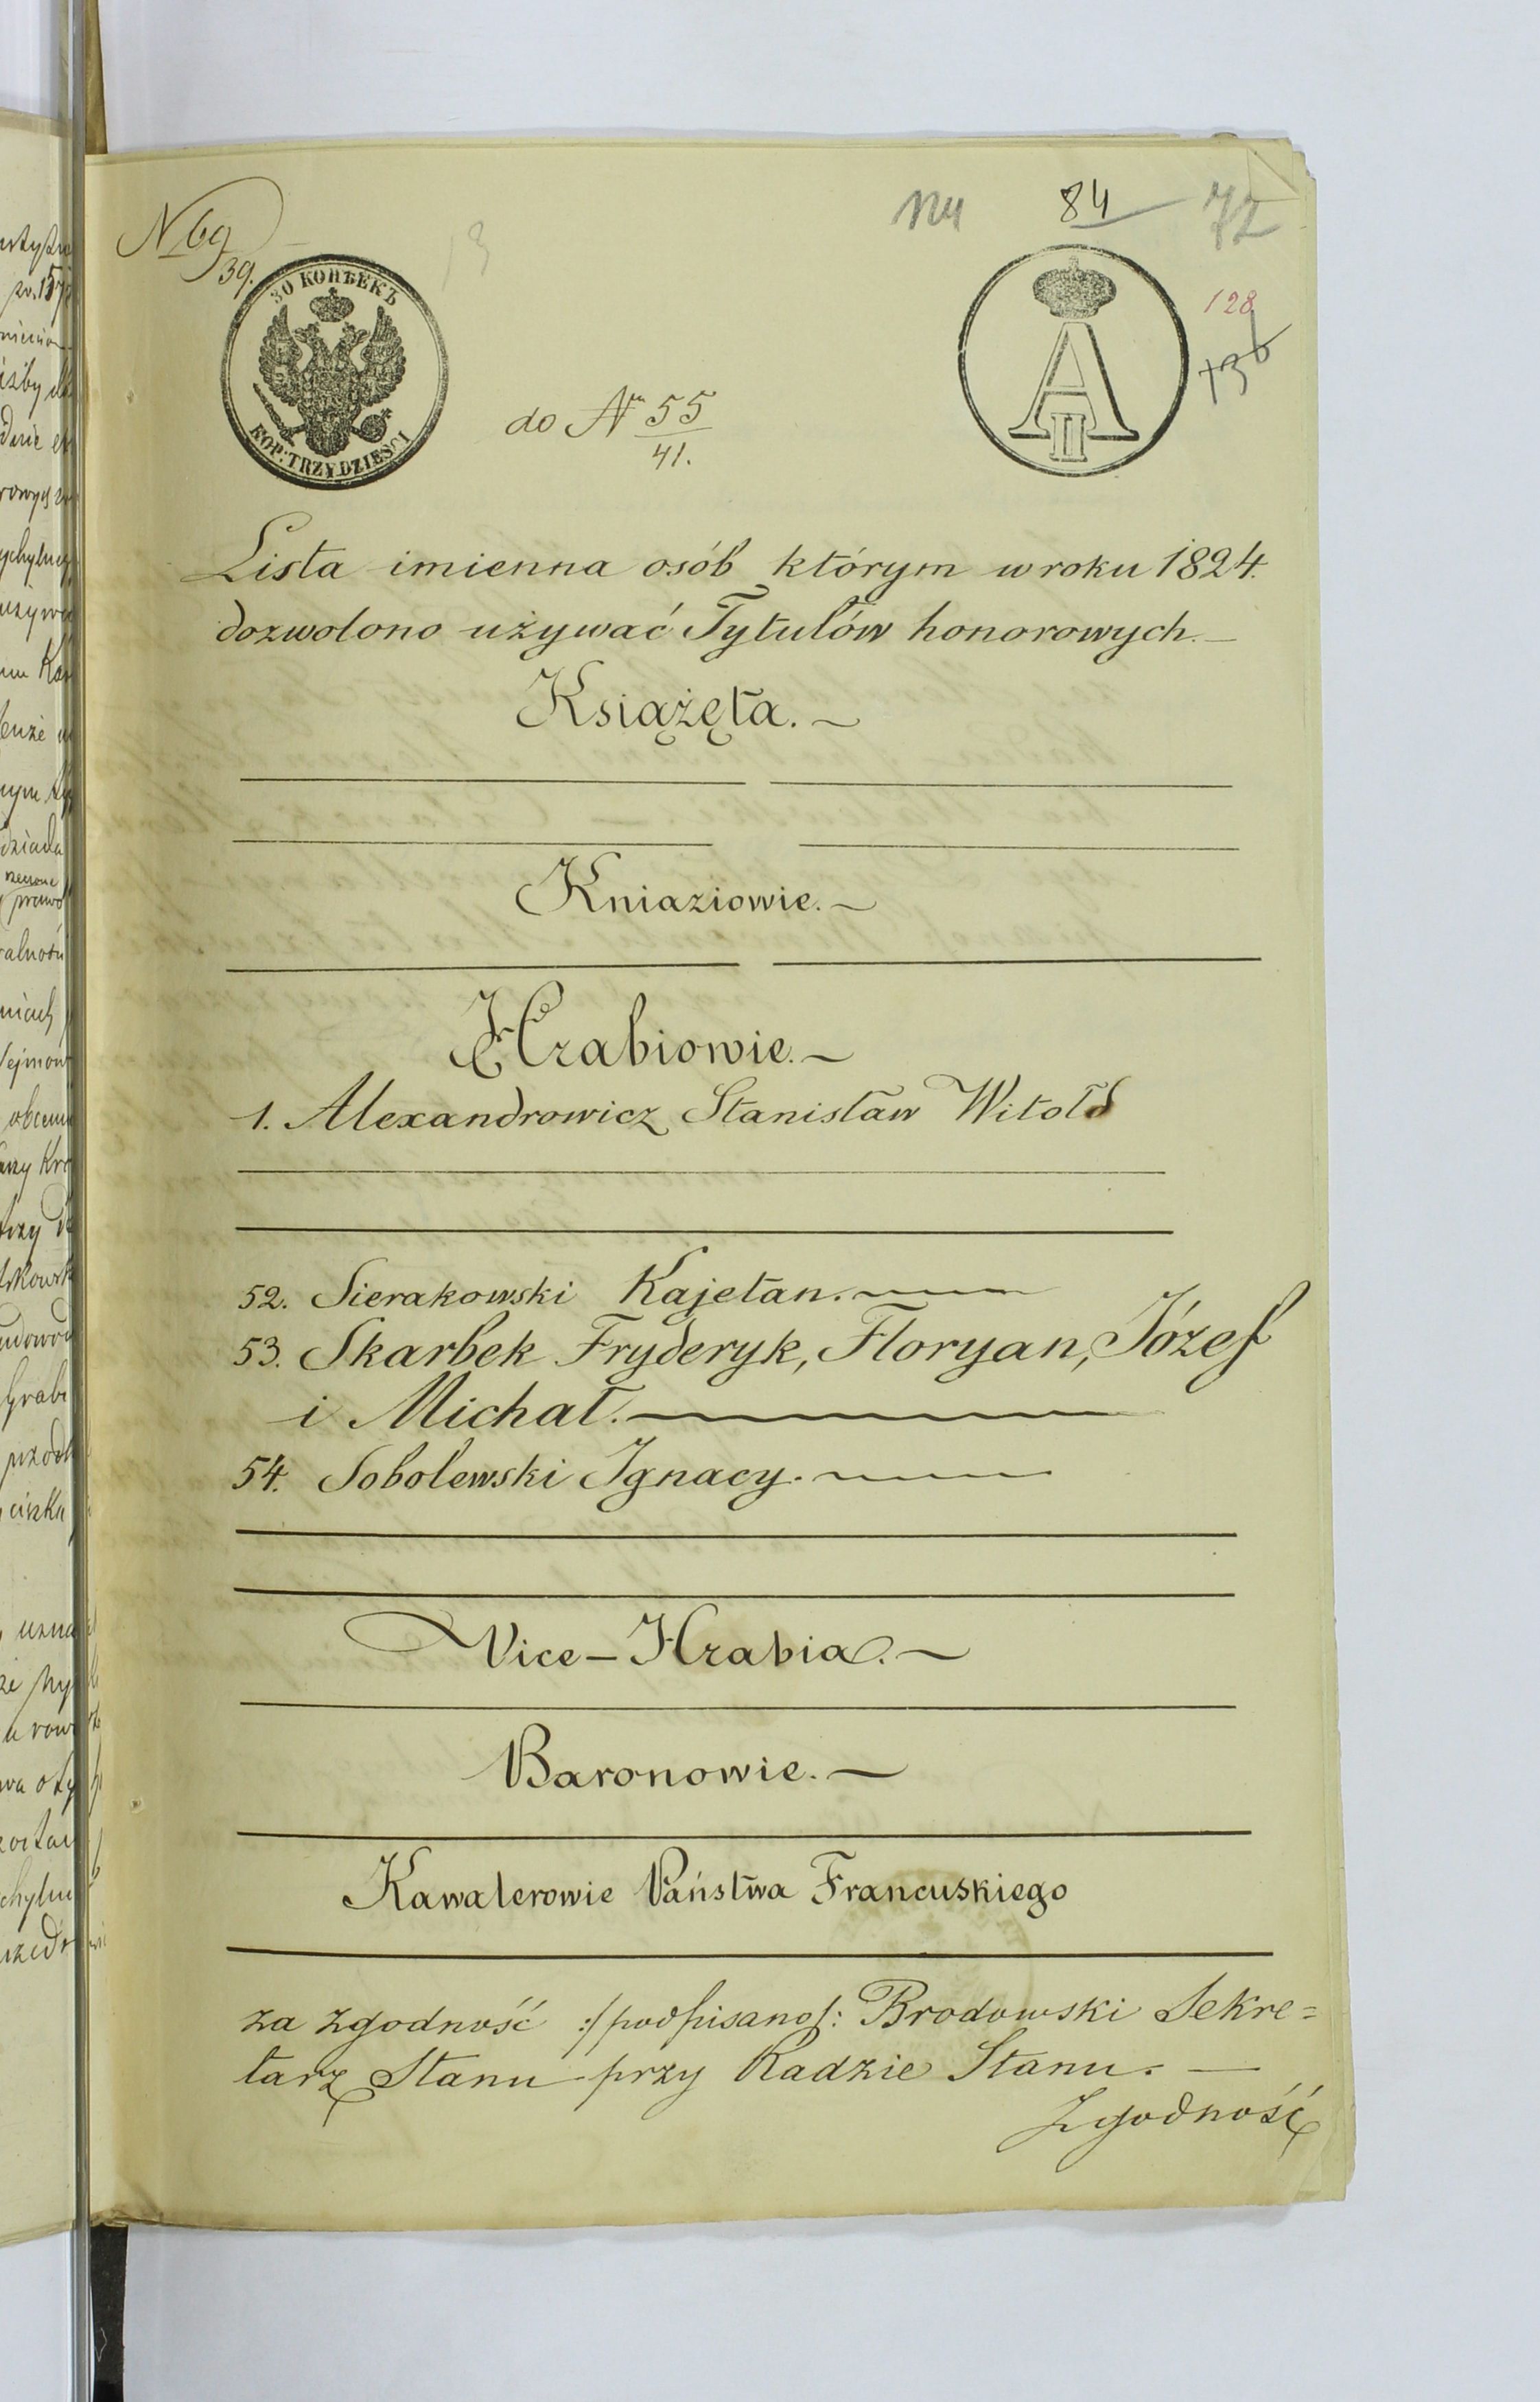 N 69
39.
124 84 72
128
136
30 КОПѢЕКЪ
KOP: TRZYDZIEŚCI
A II
do Nr 55
41.
Lista imienna osób którym w roku 1824.
dozwolono używać Tytułów honorowych.—
Książęta.—
Kniaziowie.—
Hrabiowie.—
1. Alexandrowicz Stanisław Witold
52. Sierakowski Kajetan.—
53. Skarbek Fryderyk, Floryan, Józef
i Michał.—
54. Sobolewski Ignacy.—
Vice-Hrabia.—
Baronowie.—
Kawalerowie Państwa Francuskiego
za zgodność :/podpisano/: Brodowski Sekre=
tarz Stanu przy Radzie Stanu.—
Zgodność